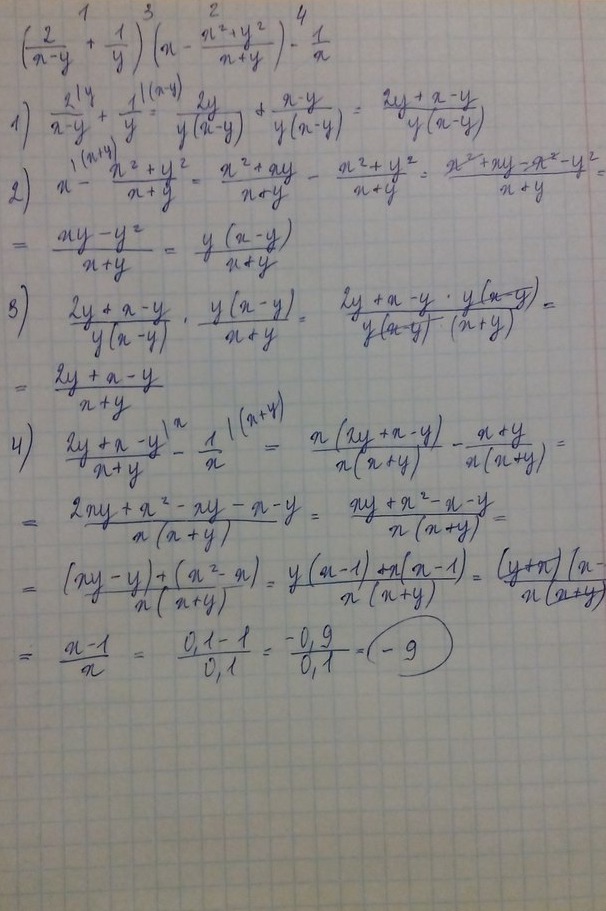 1 3 2 4
(2/(x-y) + 1/y) (x - (x²+y²)/(x+y)) - 1/x
1) 2|y/(x-y) + 1|(x-y)/y = 2y/(y(x-y)) + (x-y)/(y(x-y)) = (2y+x-y)/(y(x-y))
2) x|(x+y) - (x²+y²)/(x+y) = (x²+xy)/(x+y) - (x²+y²)/(x+y) = (x²+xy-x²-y²)/(x+y) =
= (xy-y²)/(x+y) = y(x-y)/(x+y)
3) (2y+x-y)/(y(x-y)) · y(x-y)/(x+y) = (2y+x-y · y(x-y))/(y(x-y)·(x+y)) =
= (2y+x-y)/(x+y)
4) (2y+x-y)|x/(x+y) - 1|(x+y)/x = x(2y+x-y)/(x(x+y)) - (x+y)/(x(x+y)) =
= (2xy+x²-xy-x-y)/(x(x+y)) = (xy+x²-x-y)/(x(x+y)) =
= ((xy-y)+(x²-x))/(x(x+y)) = (y(x-1)+x(x-1))/(x(x+y)) = (y+x)(x-/x(x+y)
= (x-1)/x = (0,1-1)/0,1 = -0,9/0,1 = -9